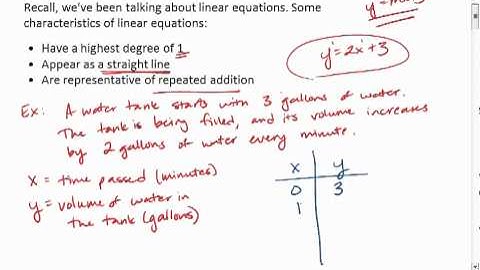 Recall, we've been talking about linear equations. Some
characteristics of linear equations:
• Have a highest degree of 1
• Appear as a straight line
• Are representative of repeated addition
y=2x+3
Ex: A water tank starts with 3 gallons of water.
The tank is being filled, and its volume increases
by 2 gallons of water every minute.
x = time passed (minutes)
y = volume of water in
the tank (gallons)
x y
0 3
1